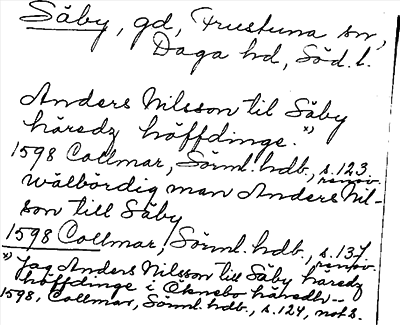 Säby, gd, Frustuna sn,
Daga hd, Söd. l.
Anders Nilsson til Säby
häredz höffdinge. x)
1598 Collmar, Sörml. hdb., s. 123
renov.
wälbördig man Anders Nil-
son till Säby
1598 Collmar, Sörml. hdb., s. 137
renov.
x) Jag Anders Nilsson till Säby häredz
höffdinge i Öknebo häredh--
1598, Collmar, Sörml. hdb., s. 124, not 8.